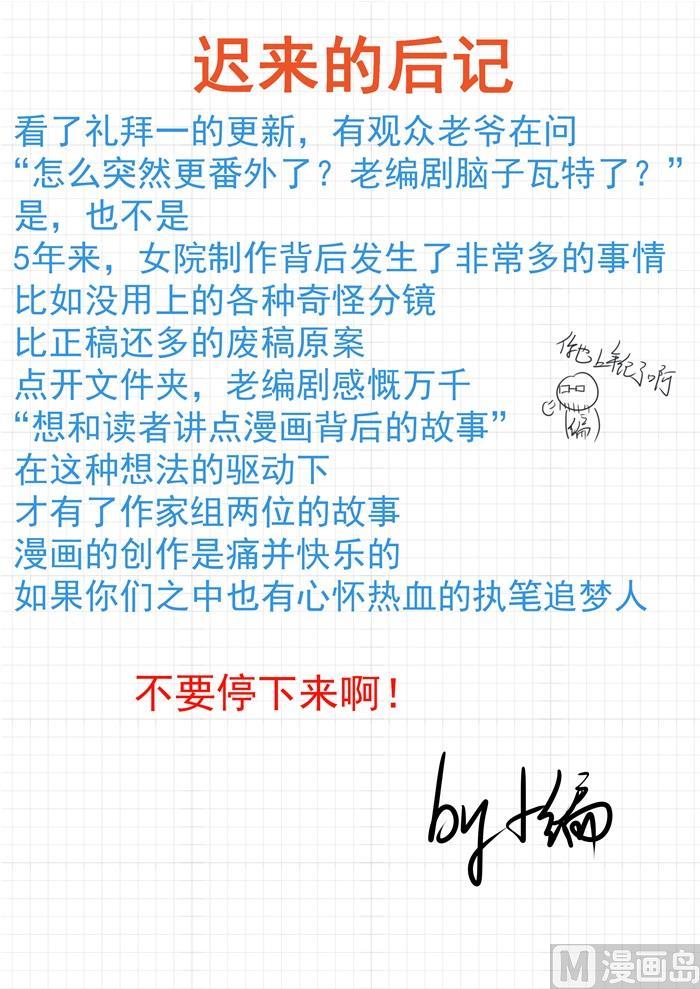 迟来的后记
看了礼拜一的更新，有观众老爷在问
“怎么突然更番外了？老编剧脑子瓦特了？”
是，也不是
5年来，女院制作背后发生了非常多的事情
比如没用上的各种奇怪分镜
比正稿还多的废稿原案
点开文件夹，老编剧感慨万千
“想和读者讲点漫画背后的故事”
在这种想法的驱动下
才有了作家组两位的故事
漫画的创作是痛并快乐的
如果你们之中也有心怀热血的执笔追梦人
你也上年纪了啊
编
不要停下来啊！
by小编
M漫画岛